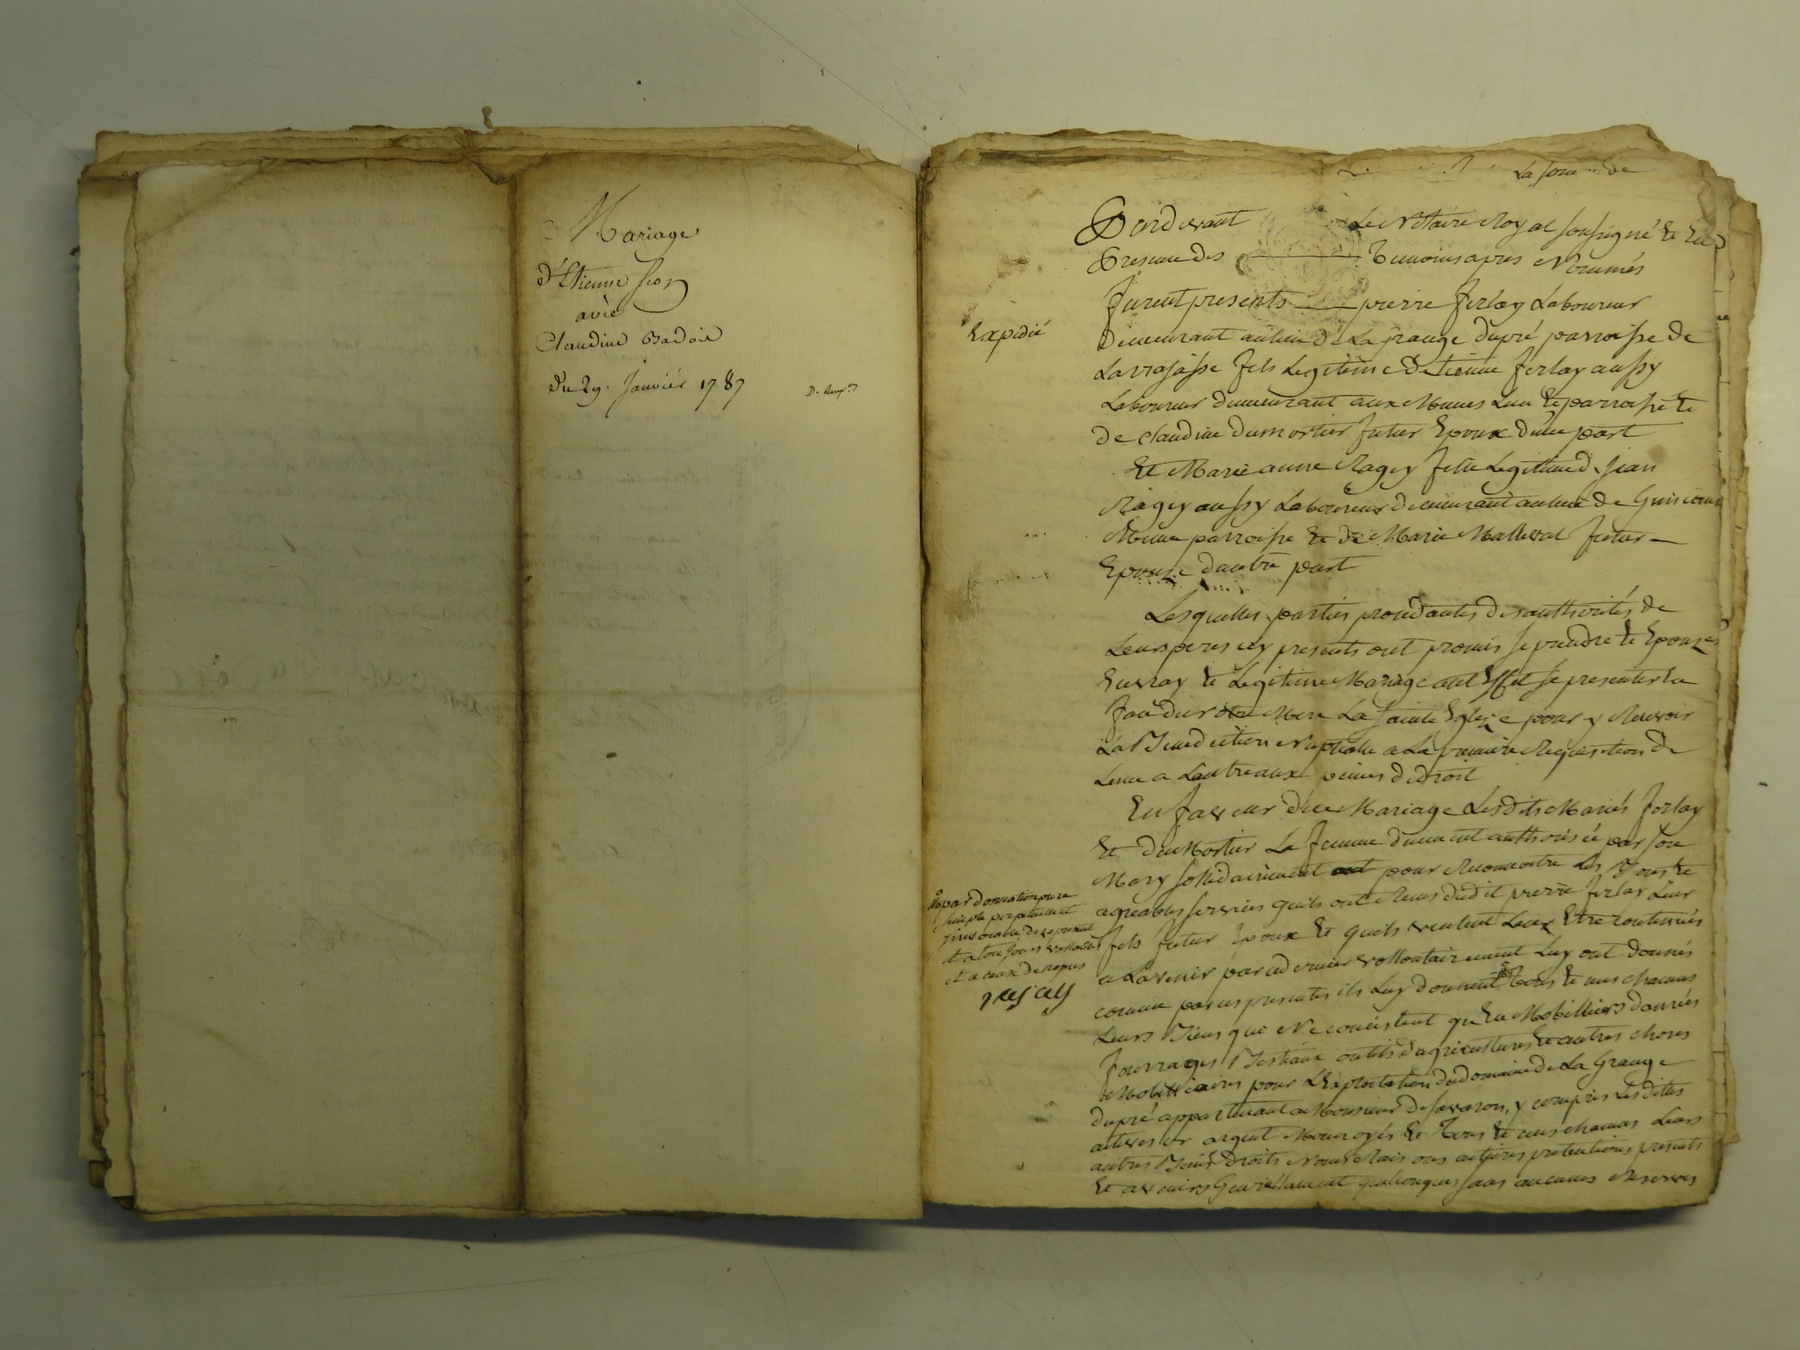 Mariage
d'Etienne
avec
Claudine Badoil
du 29. Janvier 1787
La somme de
Pardevant Le Notaire Royal soussigné Et En
Presence des Temoins apres Nommés
furent presents pierre ferlay Laboureur
Expedié
Demeurant au lieu de La grange dupré parroisse de
Larrajasse fils Legitime d'Etienne ferlay aussy
Laboureur demeurant aux Mures Susd. parroisse Et
de Claudine dumortier futur Epoux d'une part
Et Marie anne Ragey fille Legitime de Jean
Ragey aussy Laboureur demeurant au lieu de
Meme parroisse Et de Marie Malleval future
Epouze d'autre part
Lesquelles parties procedantes des authorités de
Leurs peres icy presents ont promis se prendre Et Epouzer
En vray Et Legitime Mariage a cet Effet se presenter En
face de notre Mere La Sainte Eglize pour y Recevoir
La Benediction Nuptiale a La premiere Requisition de
L'une a L'autre aux peines de droit
En faveur du Mariage Lesdits Mariés ferlay
Et dumortier La femme dument authorisée par son
Mary sollidairement pour Reconnoitre Les Bons Et
agreables services quils ont Reçus dudit pierre ferlay Leur
fils futur Epoux Et quils veulent Leur Etre continués
a L'avenir par ce dernier vollontairement Luy ont donnés
comme par ces presentes ils Luy donnent Tous Et uns chacuns
par donnation pure
simple perpetuelle et
irrevocable
et a toujours vallable
et a cause de nopces
Leurs Biens qui Ne consistent qu'En Mobilliers danrées
fourrages Bestiaux outils d'agricultures Et autres choses
Mobilliaires pour L'Exploitation du domaine de La Grange
dupré appartenant a Monsieur de Savaron, y compris Lesdittes
or argent Monnoyés Et Tous Et uns chacuns Leurs
autres Biens Droits Noms Raisons actions pretentions presents
Et avenirs Generallement quelconques sans aucunes Reserves